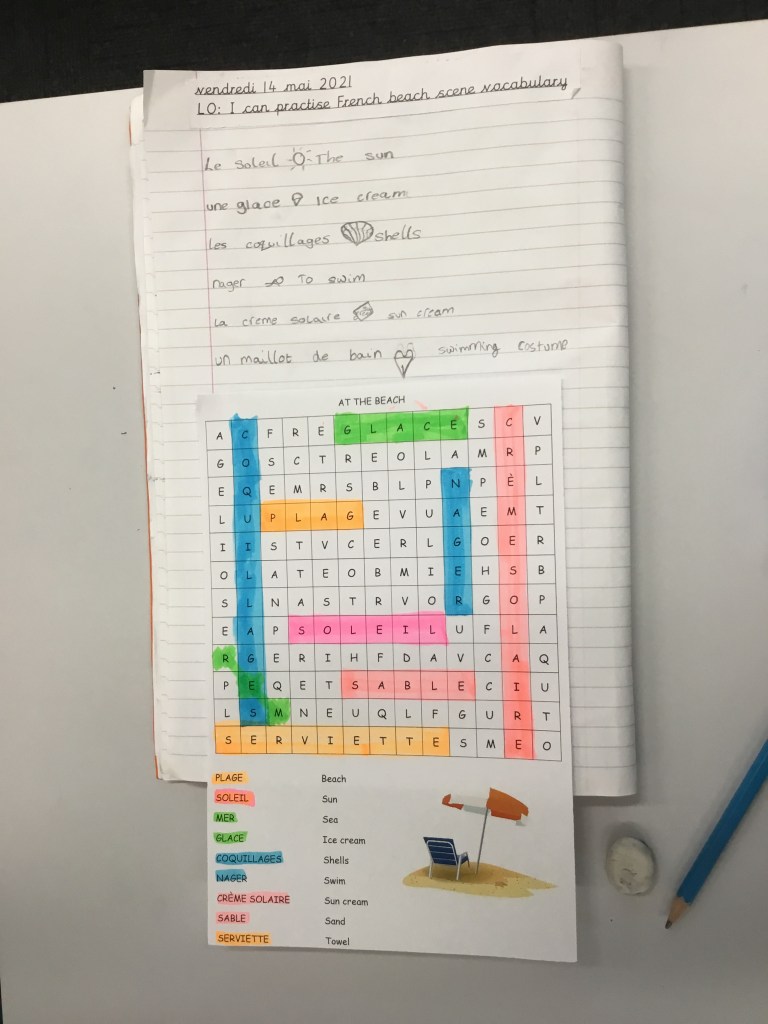 vendredi 14 mai 2021
LO: I can practise French beach scene vocabulary
Le soleil The sun
une glace Ice cream
les coquillages shells
nager To swim
La creme solaire sun cream
un maillot de bain swimming costume
AT THE BEACH
A C F R E G L A C E S C V
G O S C T R E O L A M R P
E Q E M R S B L P N P È L
L U P L A G E V U A E M T
I I S T V C E R L G O E R
O L A T E O B M I E H S B
S L N A S T R V O R G O P
E A P S O L E I L U F L A
R G E R I H F D A V C A Q
P E Q E T S A B L E C I U
L S M N E U Q L F G U R T
S E R V I E T T E S M E O
PLAGE Beach
SOLEIL Sun
MER Sea
GLACE Ice cream
COQUILLAGES Shells
NAGER Swim
CRÈME SOLAIRE Sun cream
SABLE Sand
SERVIETTE Towel